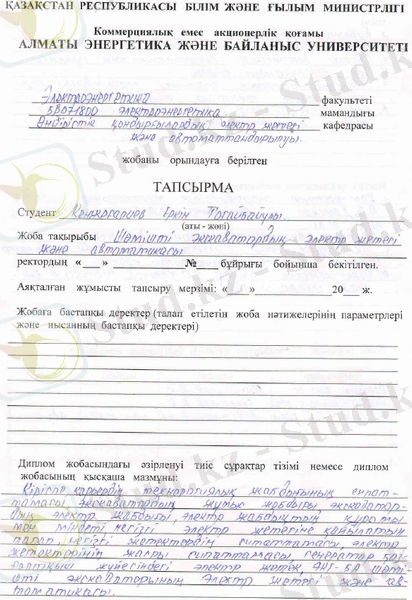 ҚАЗАҚСТАН РЕСПУБЛИКАСЫ БІЛІМ ЖӘНЕ ҒЫЛЫМ МИНИСТРЛІГІ
Коммерциялық емес акционерлік қоғамы
АЛМАТЫ ЭНЕРГЕТИКА ЖӘНЕ БАЙЛАНЫС УНИВЕРСИТЕТІ
Электроэнергетика факультеті
5В071800 электроэнергетика мамандығы
Өндірістік қондырғылардың электр жетегі кафедрасы
және автоматтандырылуы.
жобаны орындауға берілген
ТАПСЫРМА
Студент Еркін
(аты - жөні)
Жоба тақырыбы Шөмішті экскаватордың электр жетегі
және автоматикасы
ректордың «___» ________ №___ бұйрығы бойынша бекітілген.
Аяқталған жұмысты тапсыру мерзімі: «___»________20___ ж.
Жобаға бастапқы деректер (талап етілетін жоба нәтижелерінің параметрлері
және нысанның бастапқы деректері)
Диплом жобасындағы әзірленуі тиіс сұрақтар тізімі немесе диплом
жобасының қысқаша мазмұны:
Кіріспе, карьердің технологиялық жабдығының сипат-
тамасы, экскаватордың жұмыс жабдығы, экскаватор-
дың электр жабдығы, электр жабдықтың құрамы
мен міндеті, негізгі электр жетегіне қойылатын
талап, негізгі жетектердің сипаттамасы, электр
жетектерінің жалпы сипаттамасы, генератор қоз-
жүйесіндегі электр жетек, шөмі-
шті экскаваторының электр жетегі және ав-
томатикасы.
Stud.kz - Stud.kz